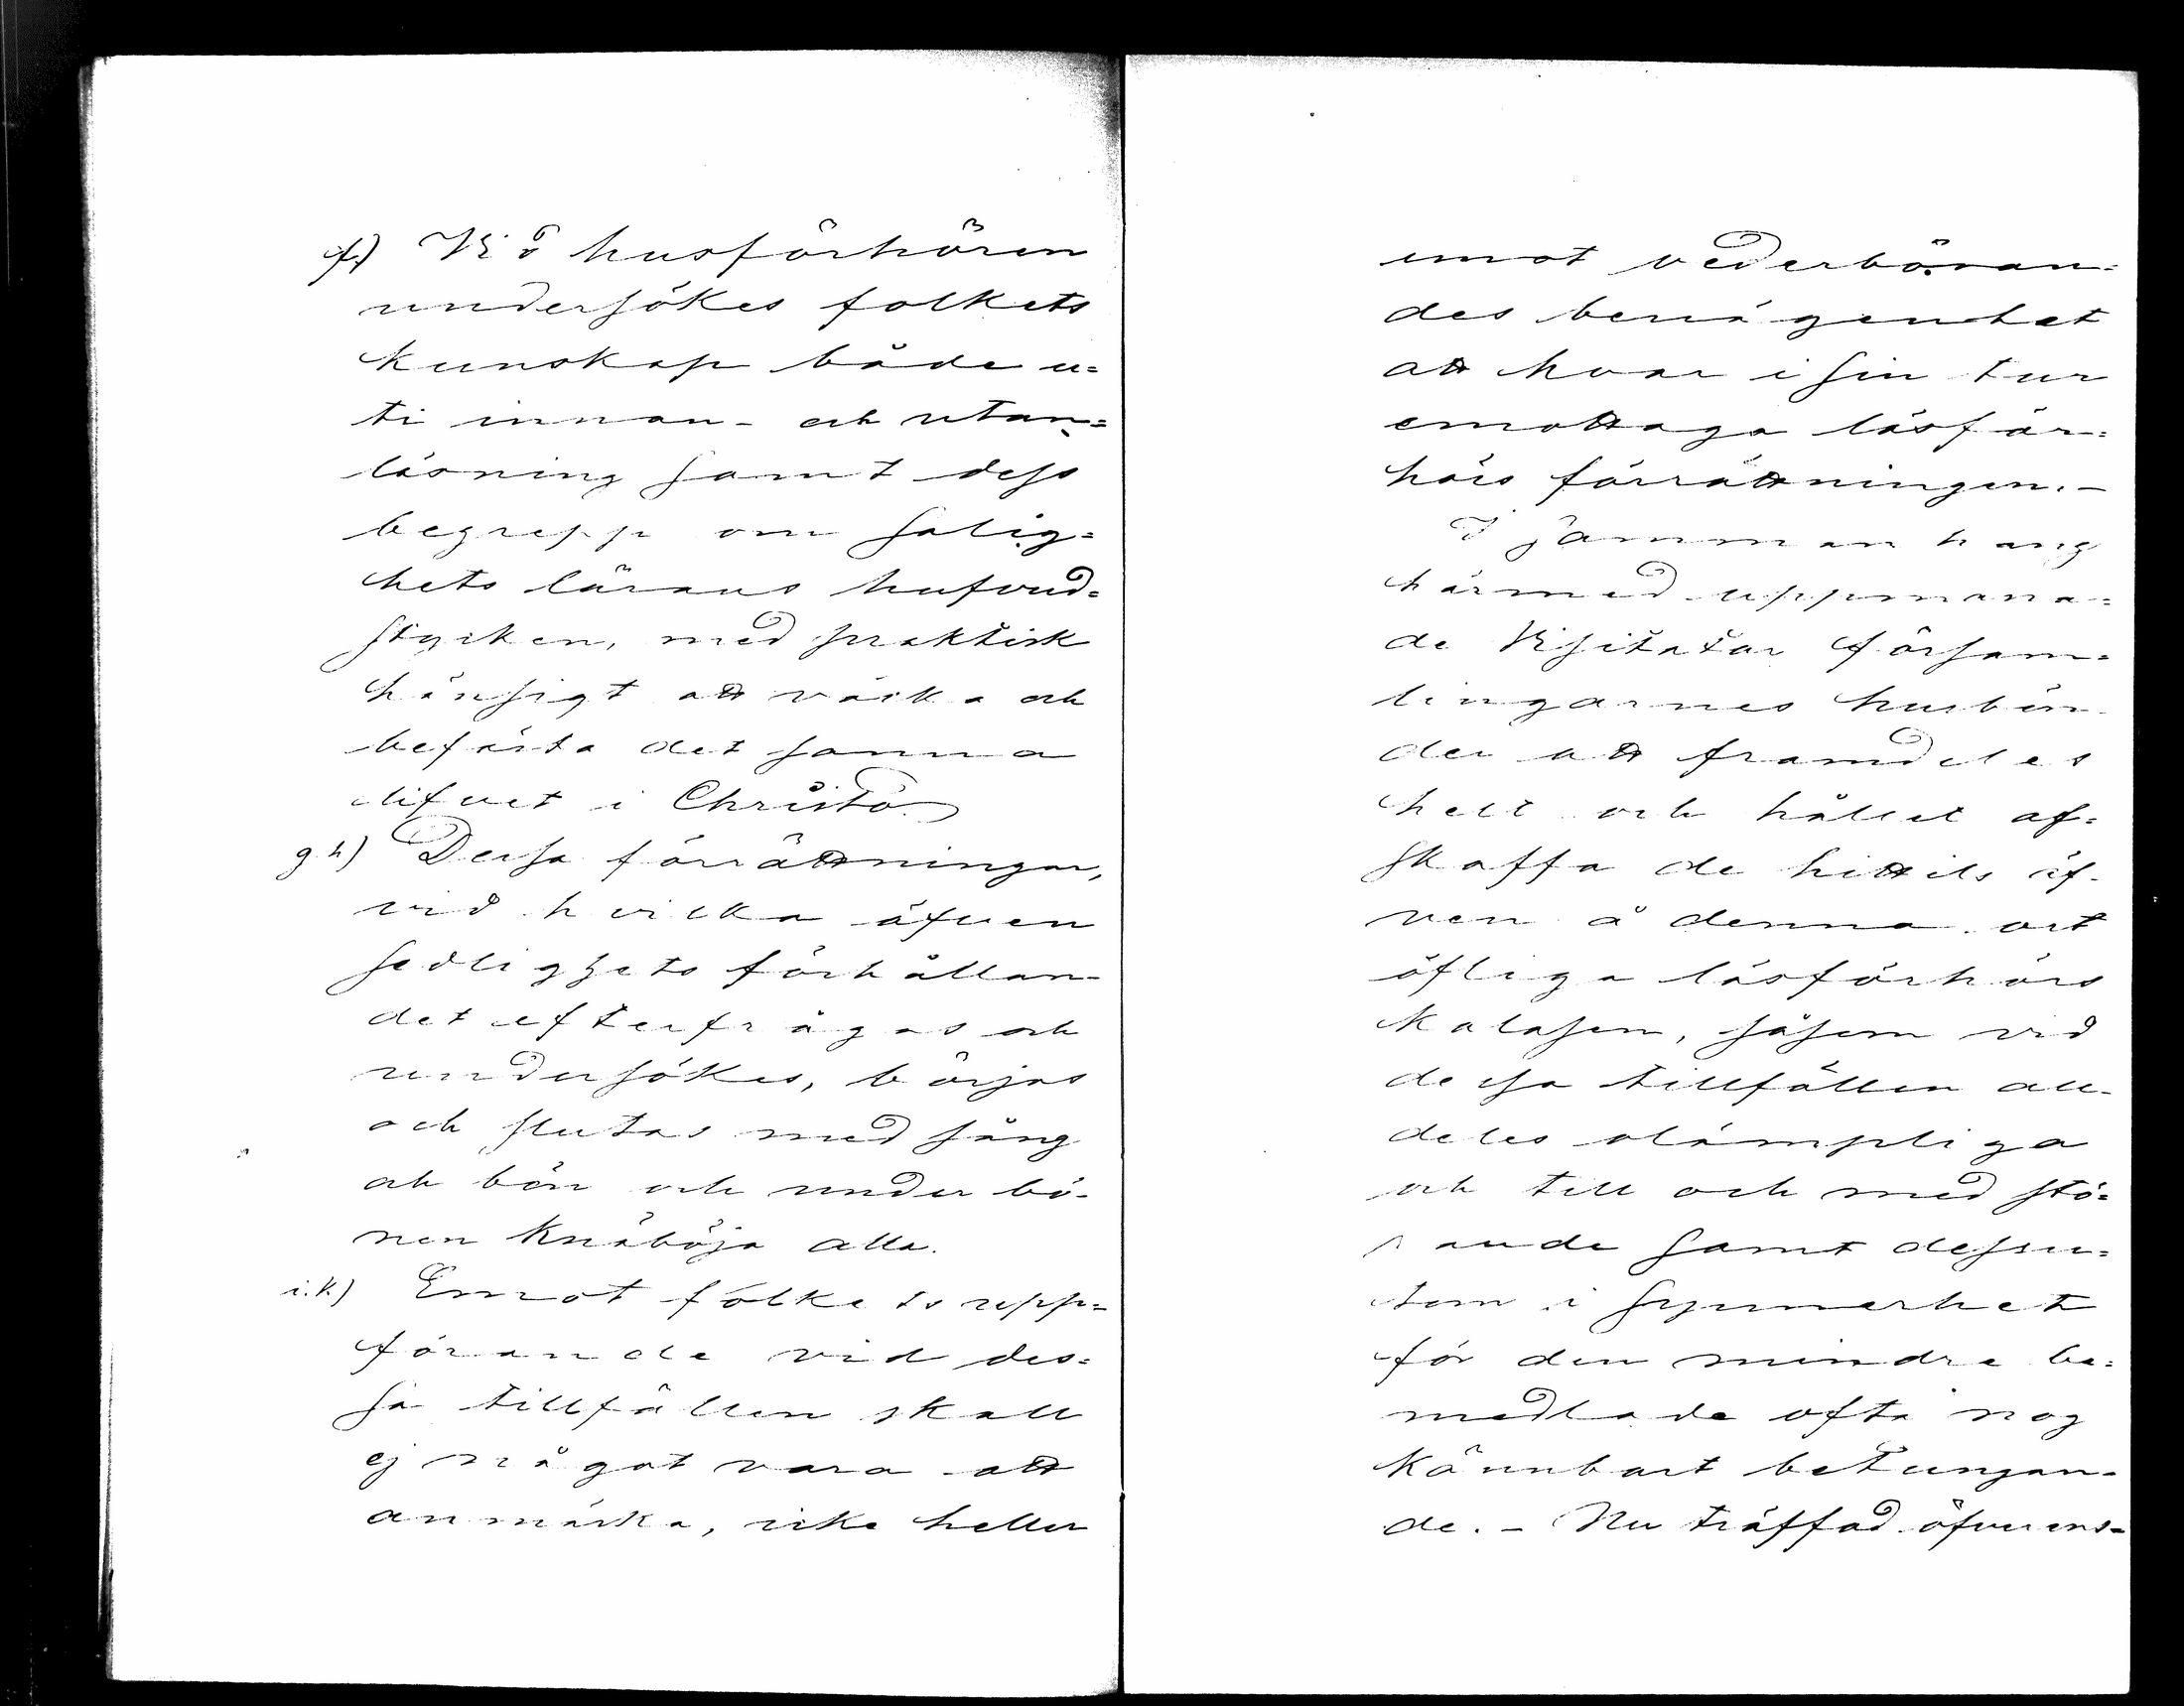 f.) Vid husförhören
undersökes folkets
kunskap både u=
ti innan- och utan=
läsning samt dess
begrepp om salig=
hets lärans hufvud=
stycken, med praktisk
hänsigt att väcka och
befästa det sanna
lifvet i Christo.
g h) Dessa förrättningar,
vid hvilka äfven
sedlighets förhållan-
det efterfrågas och
undersökes, börjas
och slutas med sång
och bön och under bö-
nen knäböja alla.
i. k.) Emot folkets upp=
förande vid des=
sa tillfällen skall
ej något vara att
anmärka, icke heller
emot vederböran=
des benägenhet
att hvar i sin tur
emottaga läsför=
hörs förrättningen. -
I samman hang
härmed uppmana=
de Visitator försam=
lingarnes husbön-
der att framdeles
helt och hållet af=
skaffa de hittils äf-
ven å denna ort
öfliga läsförhörs
kalasen, såsom vid
dessa tillfällen all-
deles olämpliga
och till och med stö=
rande samt dessu=
tom i synnerhet
för den mindre be=
medlade ofta nog
kännbart betungan-
de. - Nu träffad öfverens=